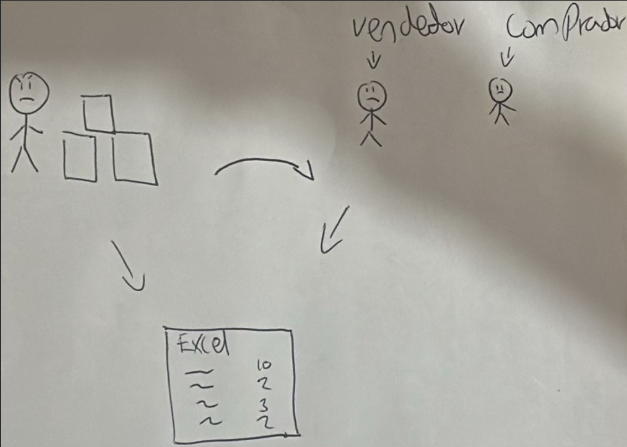 vendedor
comprador
Excel
10
2
3
2